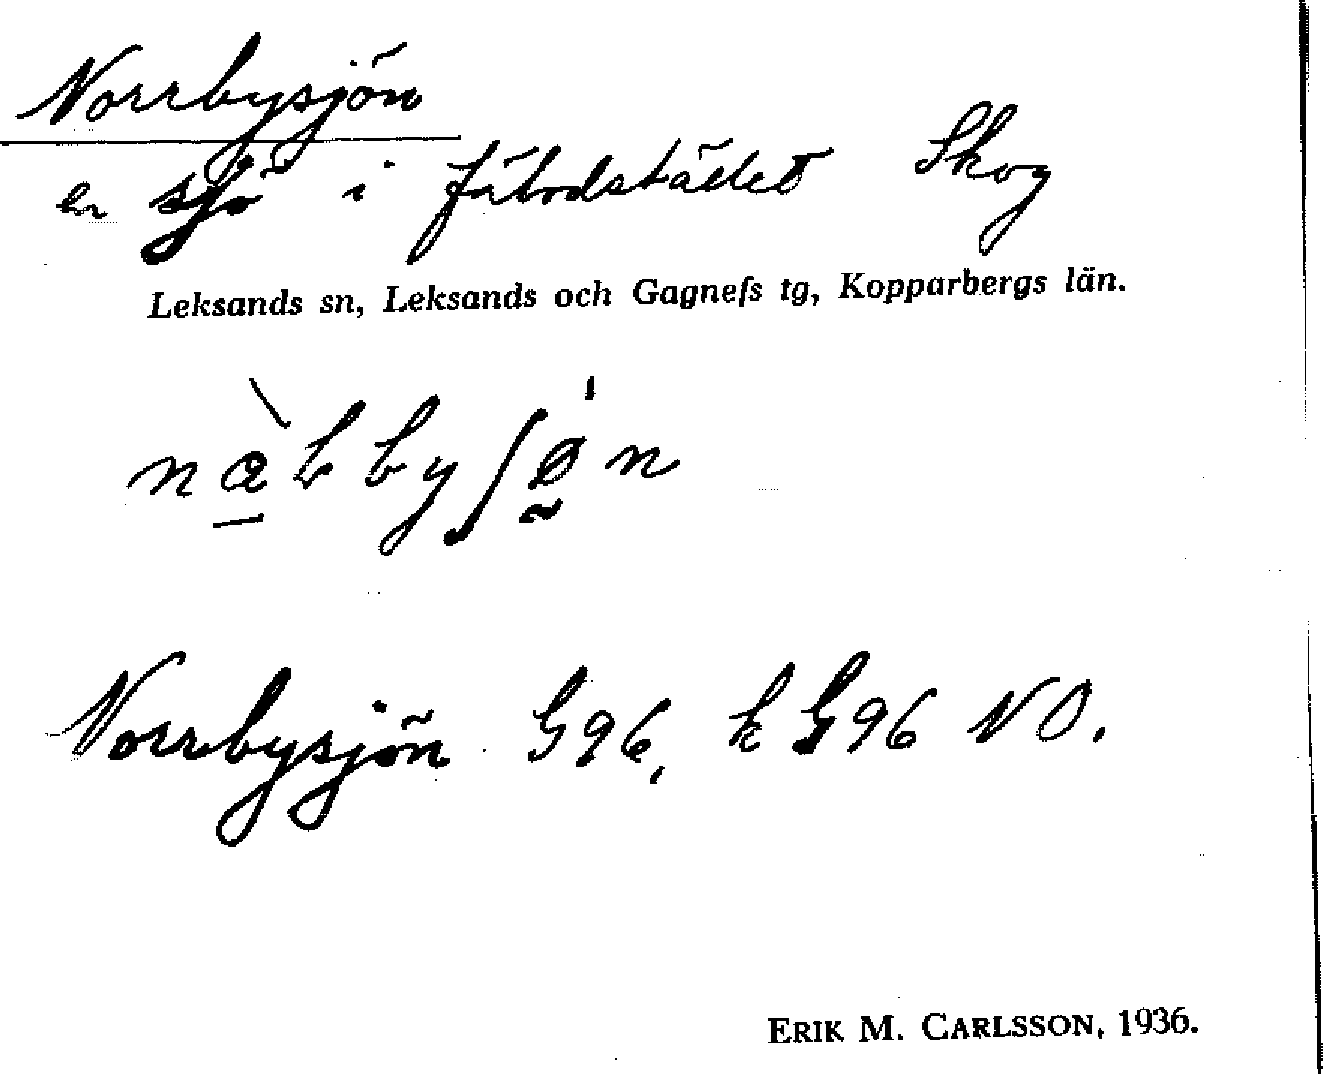 Norrbysjön
en sjö i fäbodstället Skog
Leksands sn, Leksands och Gagnefs tg, Kopparbergs län.
Norrbysjön G96, k G96 NO.
ERIK M. CARLSSON, 1936.